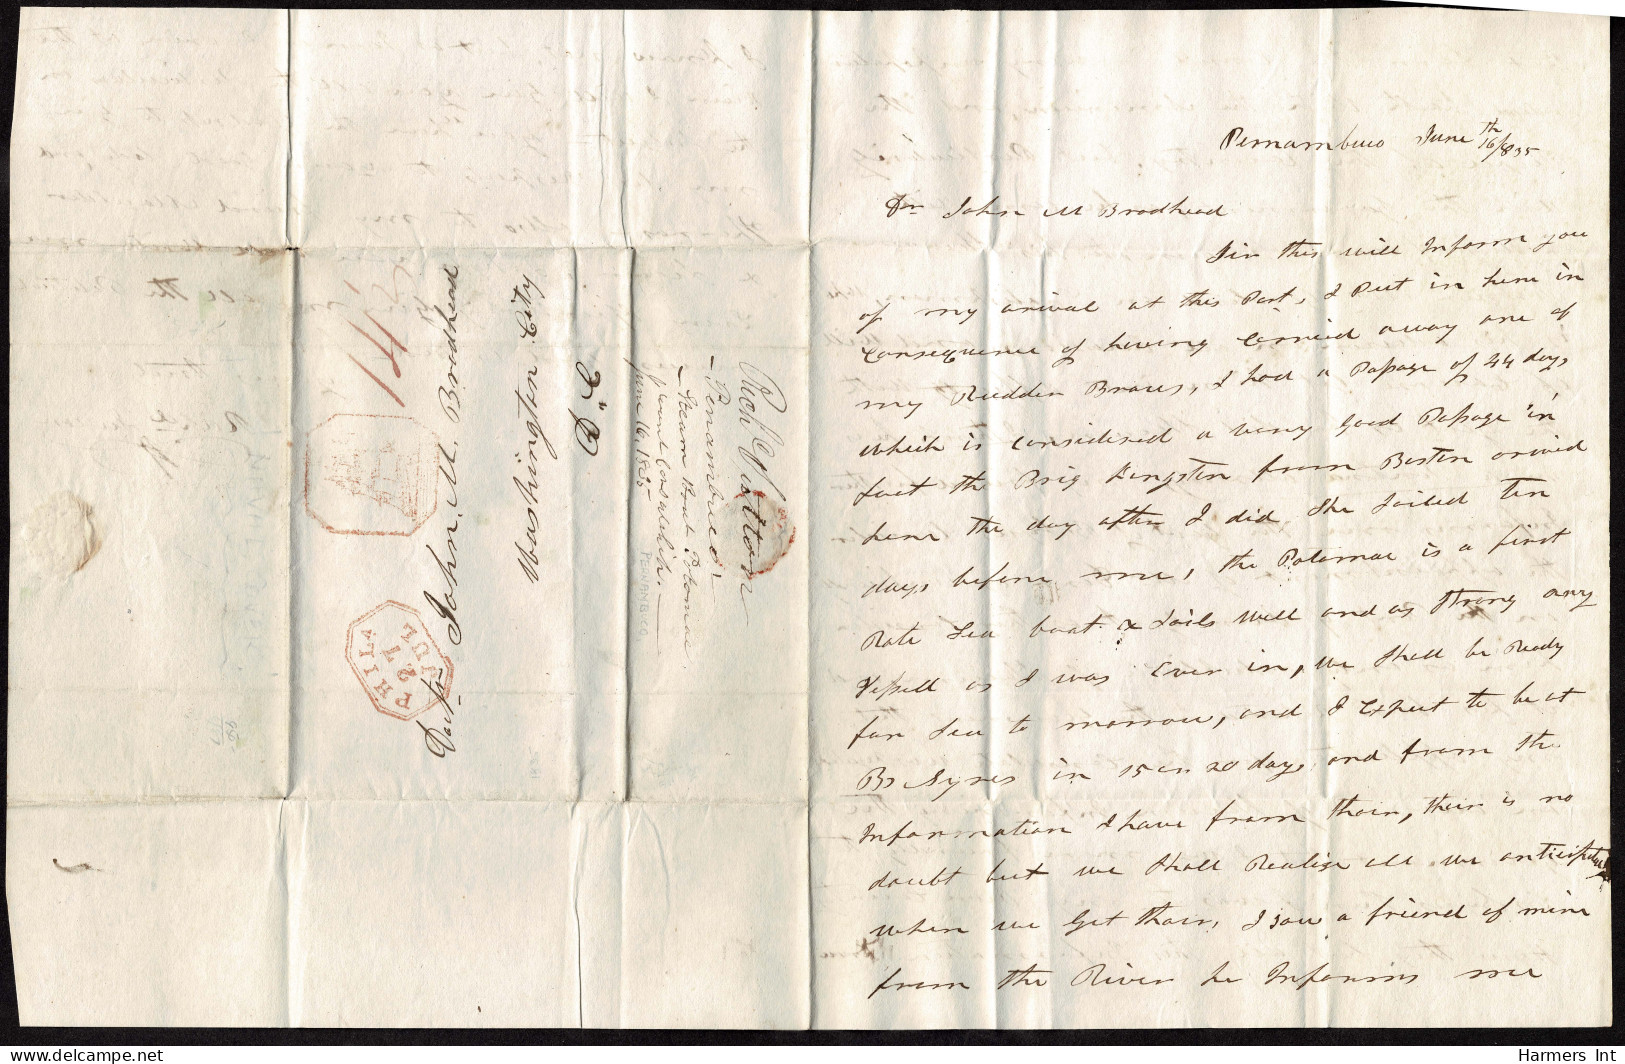 Pernambuco June 16th/835
Dr John M Brodhead
Sir this will Inform you
of my arival at this Port, I Put in here in
Consequence of having Carried away one of
my Rudder Braces, I had a Passage of 44 days
which is Considered a very Good Passage in
fact the Brig Kingston from Boston arived
here the day after I did She Sailed ten
days before me, the Potomac is a first
Rate Sea boat & Sails Well and as Strong any
Vessell as I was Ever in, we Shall be Ready
for Sea to morrow, and I Expect to be at
Bs Ayres in 15 or 20 days and from the
Information I have from thair, their is no
doubt but we Shall Realize all we anticipated
when we Get thair, I saw a friend of mine
from the River he Informs me
Doctr John. M. Brodhead
Washington City
D. C.
PHILA
27
JUL
Rich Sutton
Pernambuco
Steam Boat Potomac
June 16, 1835
PERNANBCO